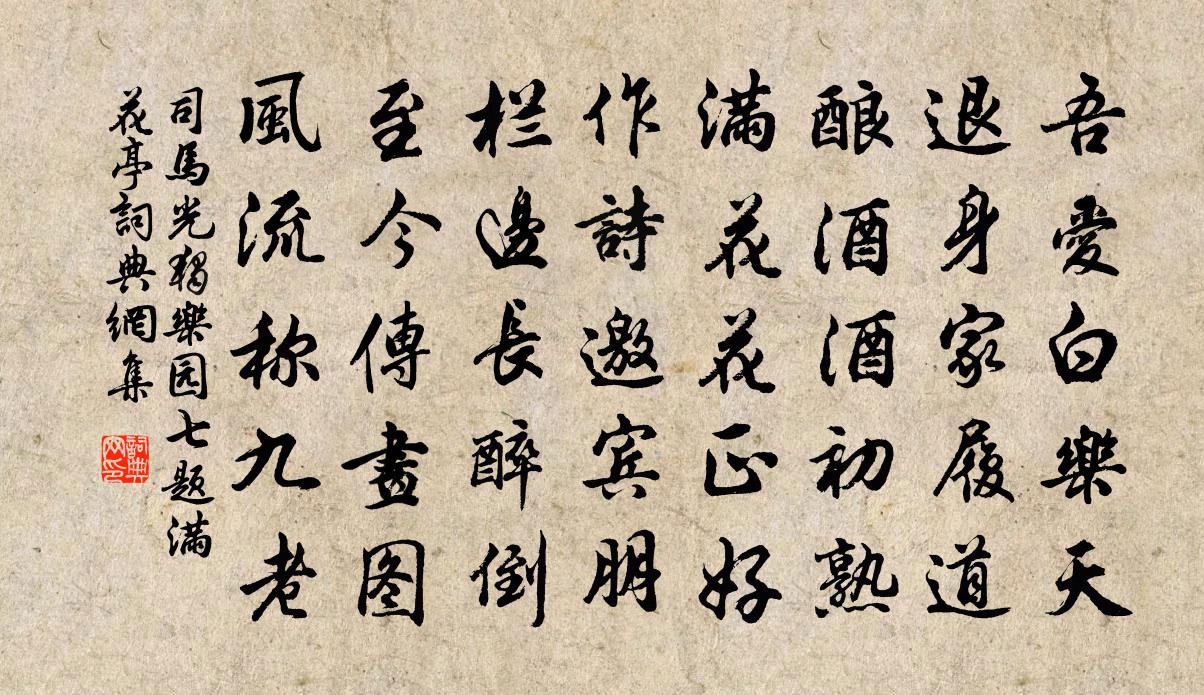 吾愛白樂天
退身家履道
酿酒酒初熟
滿花花正好
作詩邀宾朋
栏邊長醉倒
至今傳畫图
風流称九老
司馬光獨樂园七题滿
花亭詞典網集
詞典
网印